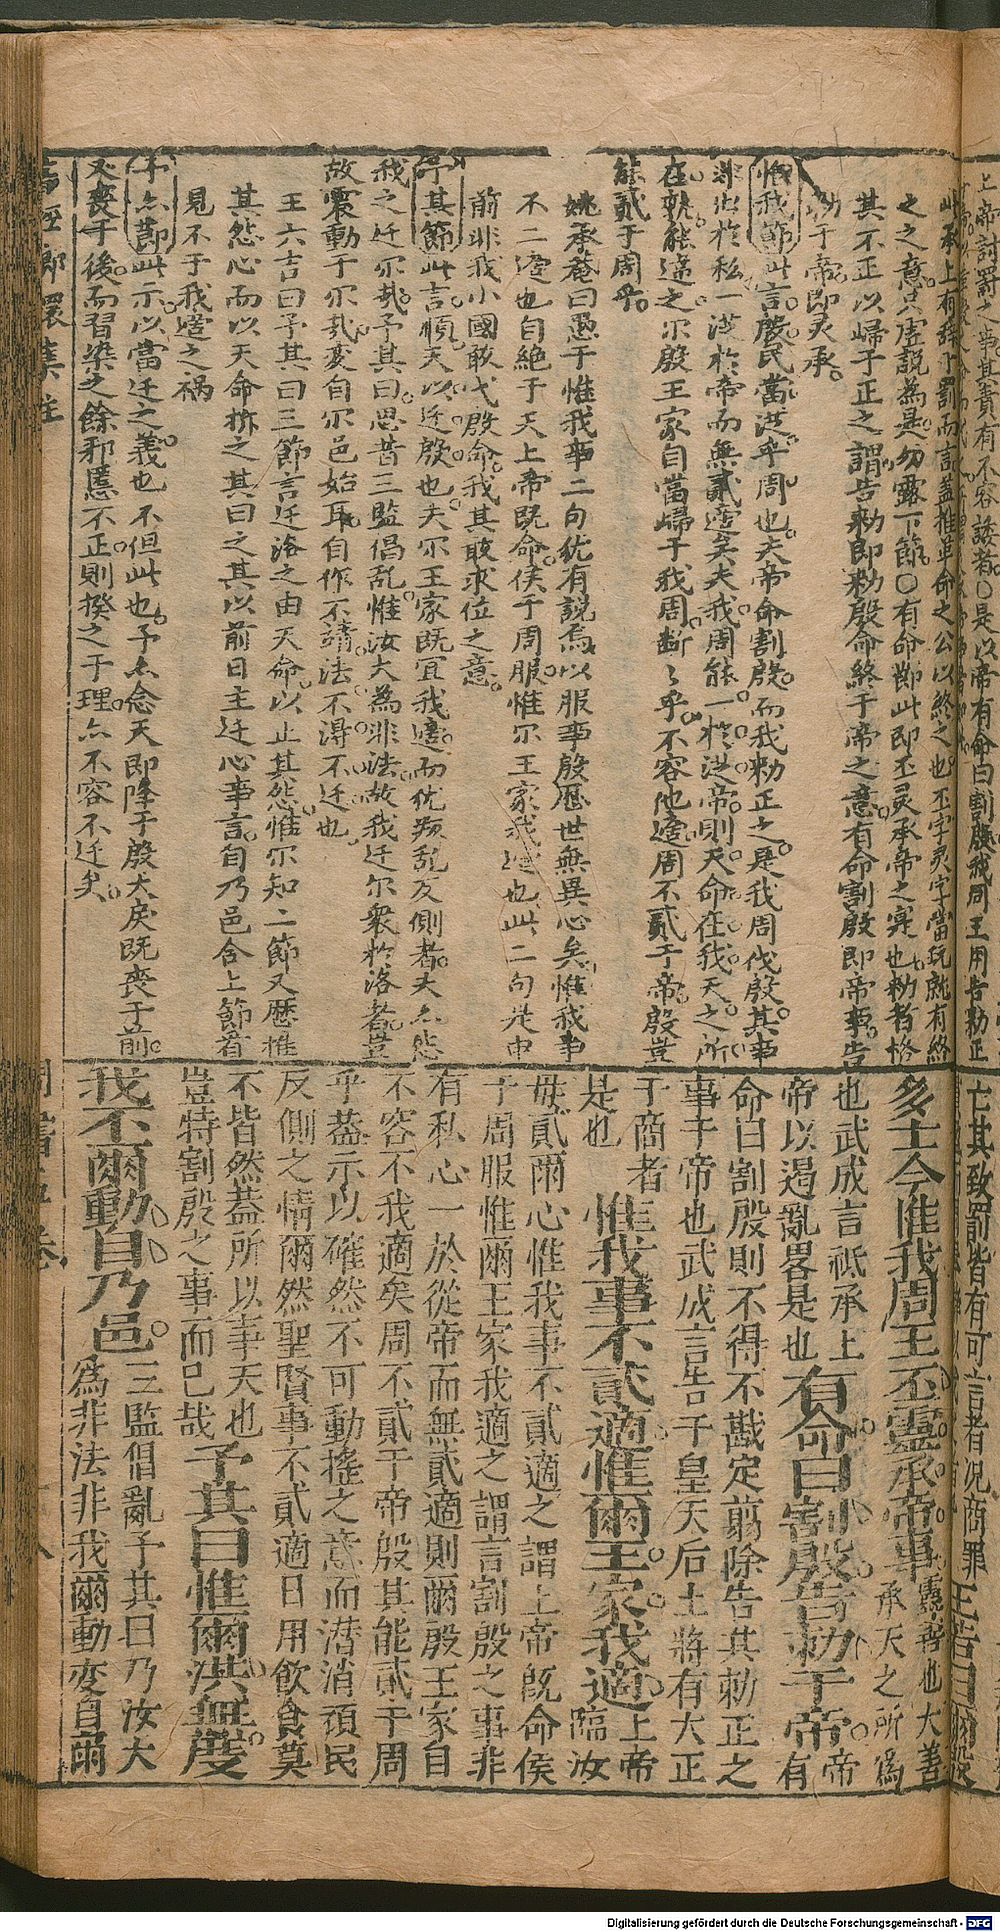 此承上有辭于罰而言蓋推革命之公以終之也丕字灵字當玩就有終
之之意只虛說為是勿露下節○有命斷此即丕灵承帝之寔也勑者格
其不正以歸于正之謂告勑即勑殷命終于帝之意有命割殷即帝事告
勑于帝即灵承
惟我節此言殷民當洪乎周也夫帝命割殷而我勑正之是我周伐殷其事
非出於私一洪於帝而無貳適矣夫我周能一於洪帝則天命在我天之所
在孰能違之尔殷王家自當歸于我周断々乎不容他適周不貳于帝殷豈
能貳于周乎
姚承菴曰愚于惟我事二句犹有說焉以服事殷歷世無異心矣惟我事
不二適也自絕于天上帝既命侯于周服惟尔王家我適也此二句是申
前非我小國敢弋殷命我其敢求位之意
予其節此言順天以迁殷也夫尔王家既宜我適而犹叛乱反側者夫亦怨
我之迁尔哉予其曰思昔三監倡乱惟汝大為非法故我迁尔衆於洛者豈
故震動于尔哉变自尔邑始耳自作不靖法不得不迁也
王六吉曰予其曰三節言迁洛之由天命以止其怨惟尔知二節又歷推
其怨心而以天命拆之其曰之其以前日主迁心事言自乃邑含上節看
見不于我適之禍
予亦節此示以當迁之義也不但此也予亦念天即降于殷大戾既喪于前
又喪于後而習染之餘邪慝不正則揆之于理亦不容不迁矣
多士今惟我周王丕靈承帝事靈善也大善承天之所為
也武成言祗承上帝以遏亂畧是也有命曰割殷告勑于帝帝有
命曰割殷則不得不戡定剪除告其勑正之
事于帝也武成言告于皇天后土將有大正
于商者是也惟我事不貳適惟爾王家我適上帝臨汝
毋貳爾心惟我事不貳適之謂上帝既命侯
于周服惟爾王家我適之謂言割殷之事非
有私心一於從帝而無貳適則爾殷王家自
不容不我適矣周不貳于帝殷其能貳于周
乎蓋示以確然不可動搖之意而潛消頑民
反側之情爾然聖賢事不貳適日用飲食莫
不皆然蓋所以事天也
豈特割殷之事而已哉予其曰惟爾洪無度
我不爾動自乃邑三監倡亂予其曰乃汝大為非法非我爾動变自爾
Digitalisierung gefördert durch die Deutsche Forschungsgemeinschaft - DFG